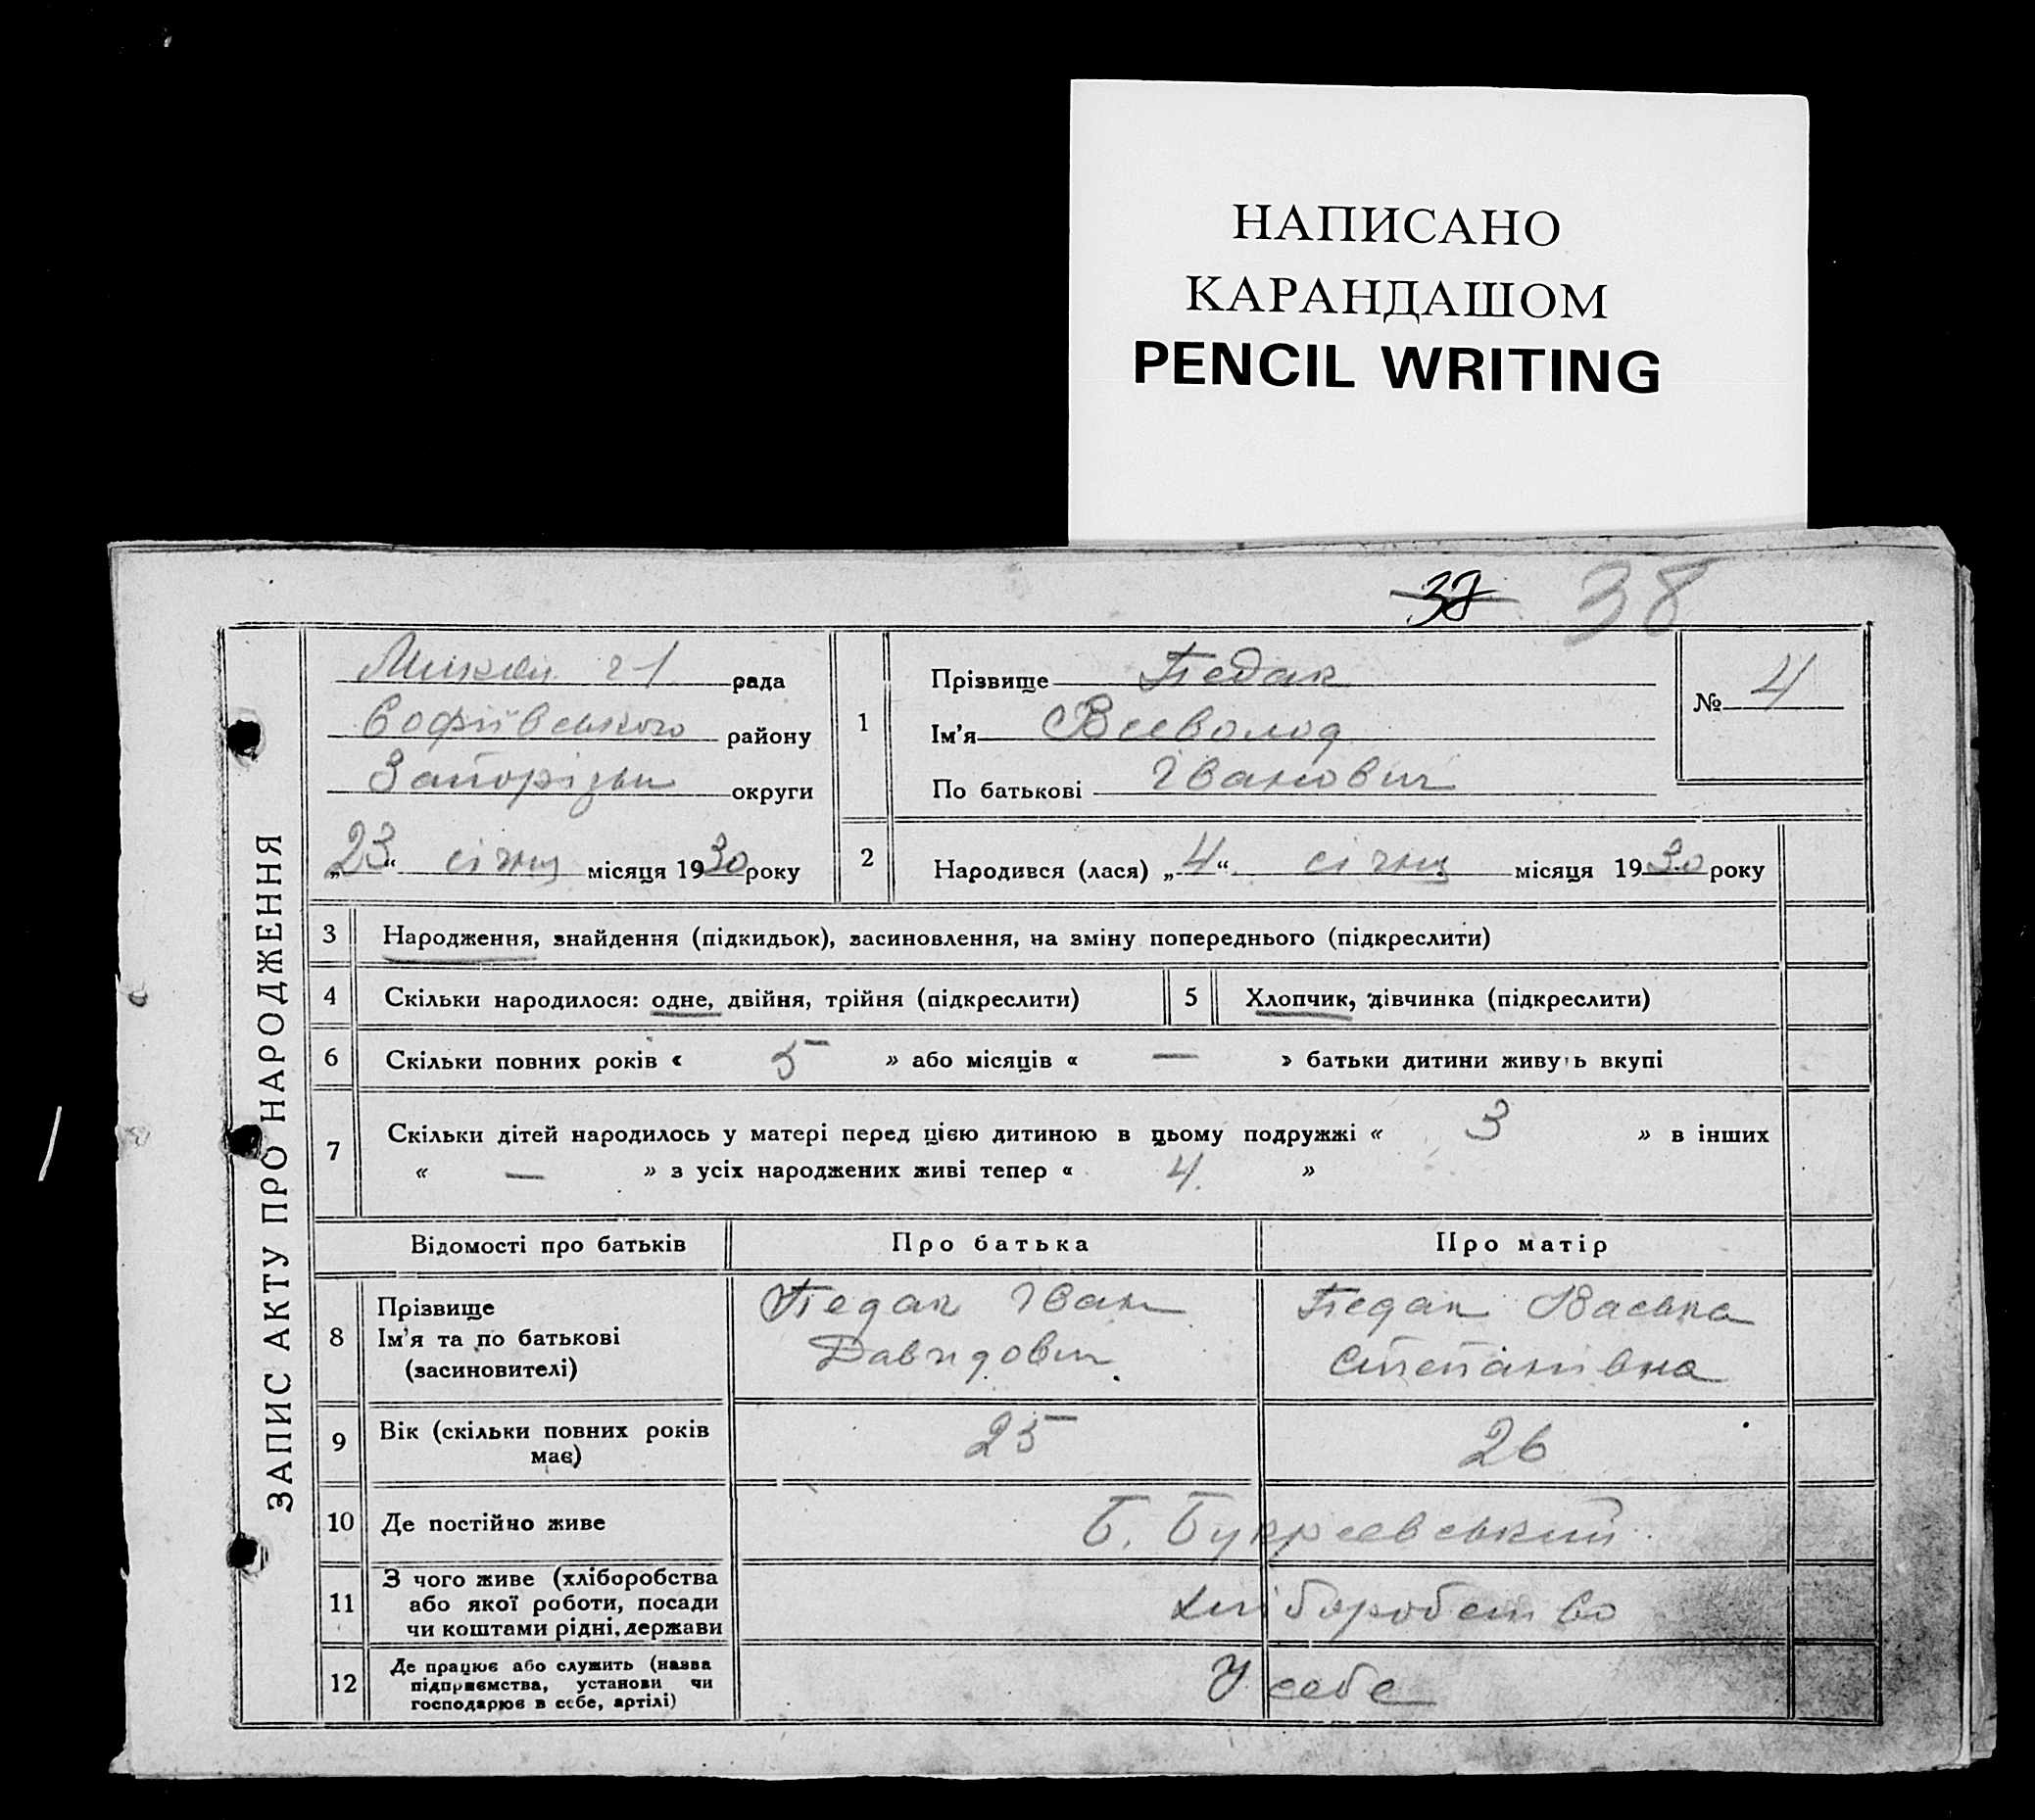 НАПИСАНО
КАРАНДАШОМ
PENCIL WRITING
38
ЗАПИС АКТУ ПРО НАРОДЖЕННЯ
рада
Софіївського району
округи
„23“ січня місяця 1930 року
1
Прізвище Педак
Ім'я Всеволод
По батькові Іванович
№ 4
2 Народився (лася) „4“ січня місяця 1930 року
3 Народження, знайдення (підкидьок), засиновлення, на зміну попереднього (підкреслити)
4 Скільки народилося: одне, двійня, трійня (підкреслити) 5 Хлопчик, дівчинка (підкреслити)
6 Скільки повних років « 5 » або місяців « — » батьки дитини живуть вкупі
7 Скільки дітей народилось у матері перед цією дитиною в цьому подружжі « 3 » в інших
« — » з усіх народжених живі тепер « 4. »
Відомості про батьків Про батька Про матір
8 Прізвище
Ім'я та по батькові
(засиновителі)
Педак Іван
Давидович
Педак
Степанівна
9 Вік (скільки повних років
має)
25 26
10 Де постійно живе Б.
11 З чого живе (хліборобства
або якої роботи, посади
чи коштами рідні, держави
хліборобство
12 Де працює або служить (назва
підприємства, установи чи
господарює в себе, артілі)
У себе